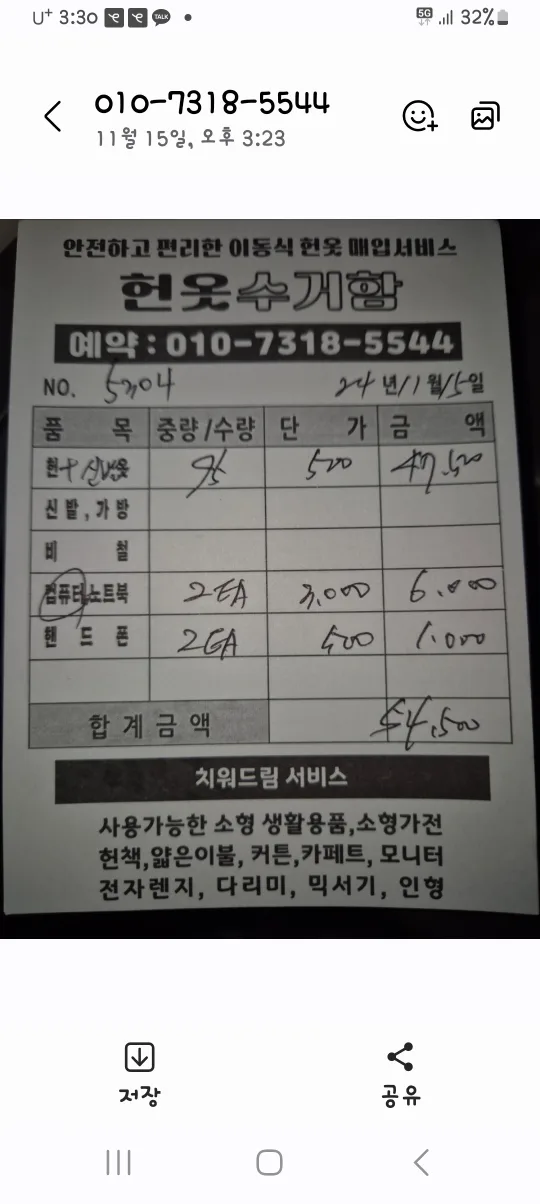 U+ 3:30 TALK 5G 32%
010-7318-5544
11월 15일, 오후 3:23
안전하고 편리한 이동식 헌옷 매입서비스
헌옷수거함
예약 : 010-7318-5544
NO. 5304 24년 11월 15일
품 목 중량/수량 단 가 금 액
95 500 47,500
신발, 가방
비 철
컴퓨터,노트북 2EA 3,000 6,000
핸 드 폰 2EA 500 1,000
합 계 금 액 54,500
치워드림 서비스
사용가능한 소형 생활용품,소형가전
헌책,얇은이불, 커튼,카페트, 모니터
전자렌지, 다리미, 믹서기, 인형
저장 공유